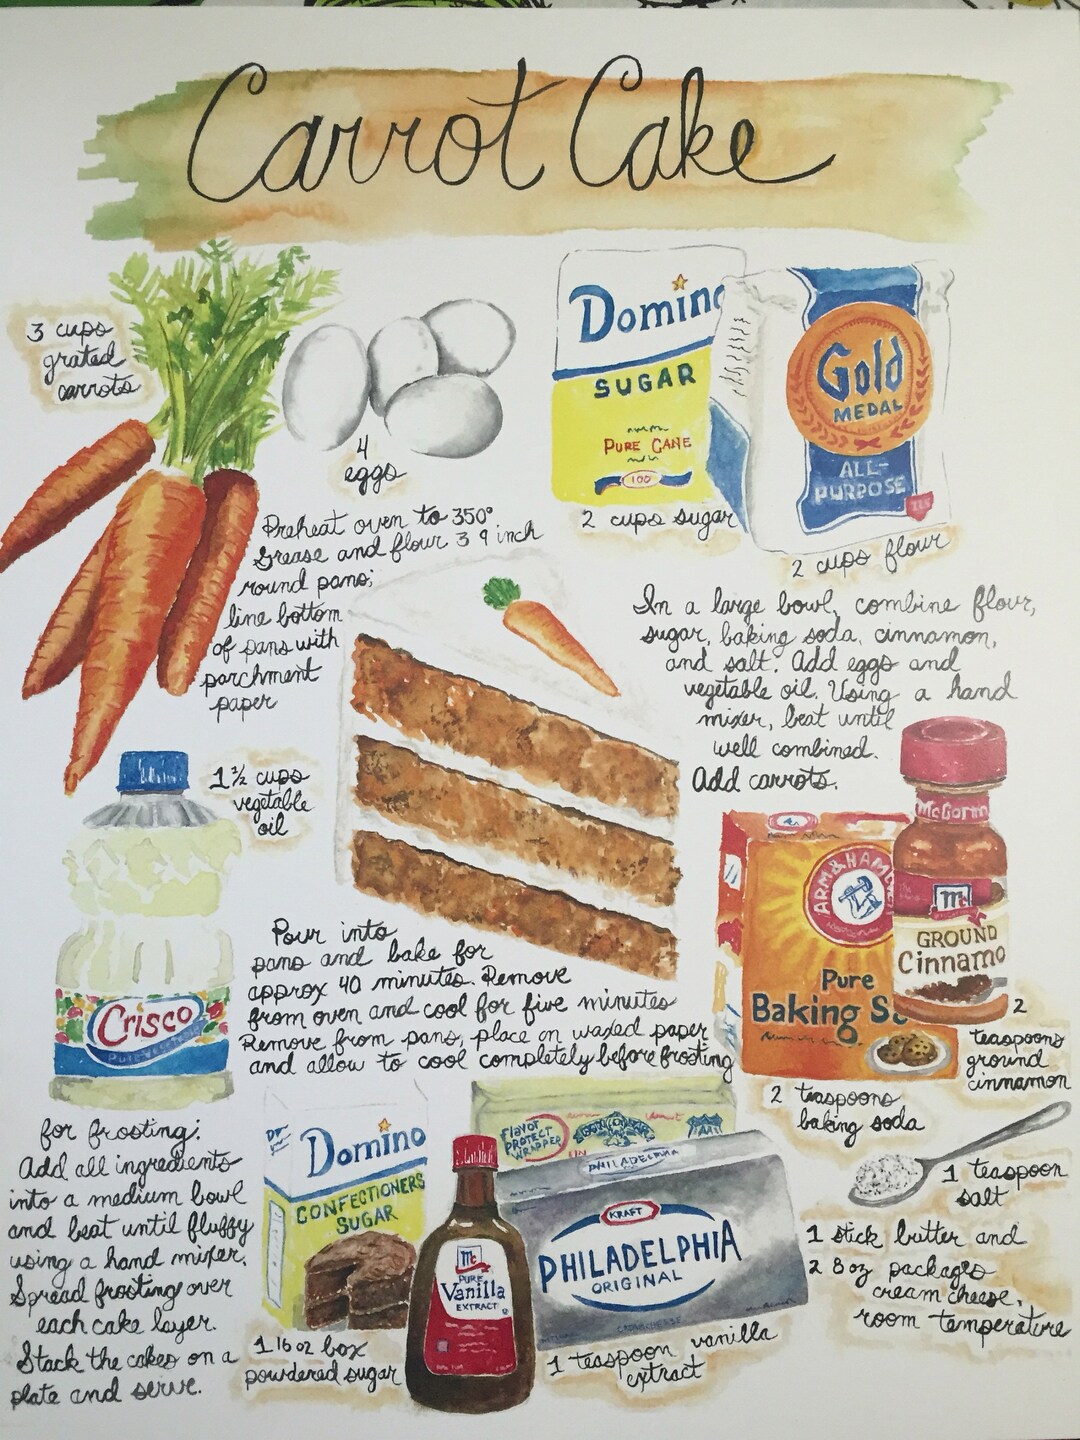 Carrot Cake
3 cups
grated
carrots
4
eggs
Domino
SUGAR
PURE CANE
100
2 cups sugar
Gold
MEDAL
ALL-
PURPOSE
2 cups flour
Preheat oven to 350°
Grease and flour 3 9 inch
round pans;
line bottom
of pans with
parchment
paper
In a large bowl, combine flour,
sugar, baking soda, cinnamon,
and salt. Add eggs and
vegetable oil. Using a hand
mixer, beat until
well combined.
Add carrots.
1 ½ cups
vegetable
oil
Crisco
Pure Vegetable
ARM & HAMMER
Pure
Baking So
McCorm
Mc
GROUND
Cinnamo
2
teaspoons
ground
cinnamon
2 teaspoons
baking soda
Pour into
pans and bake for
approx 40 minutes. Remove
from oven and cool for five minutes
Remove from pans, place on waxed paper
and allow to cool completely before frosting
1 teaspoon
salt
for frosting:
Add all ingredients
into a medium bowl
and beat until fluffy
using a hand mixer.
Spread frosting over
each cake layer.
Stack the cakes on a
plate and serve.
Domino
CONFECTIONERS
SUGAR
1 16 oz box
powdered sugar
Mc
PURE
Vanilla
EXTRACT
FLAVOR
PROTECT
WRAPPER
PHILADELPHIA
KRAFT
PHILADELPHIA
ORIGINAL
CREAM CHEESE
1 teaspoon vanilla
extract
1 stick butter and
2 8 oz packages
cream cheese,
room temperature